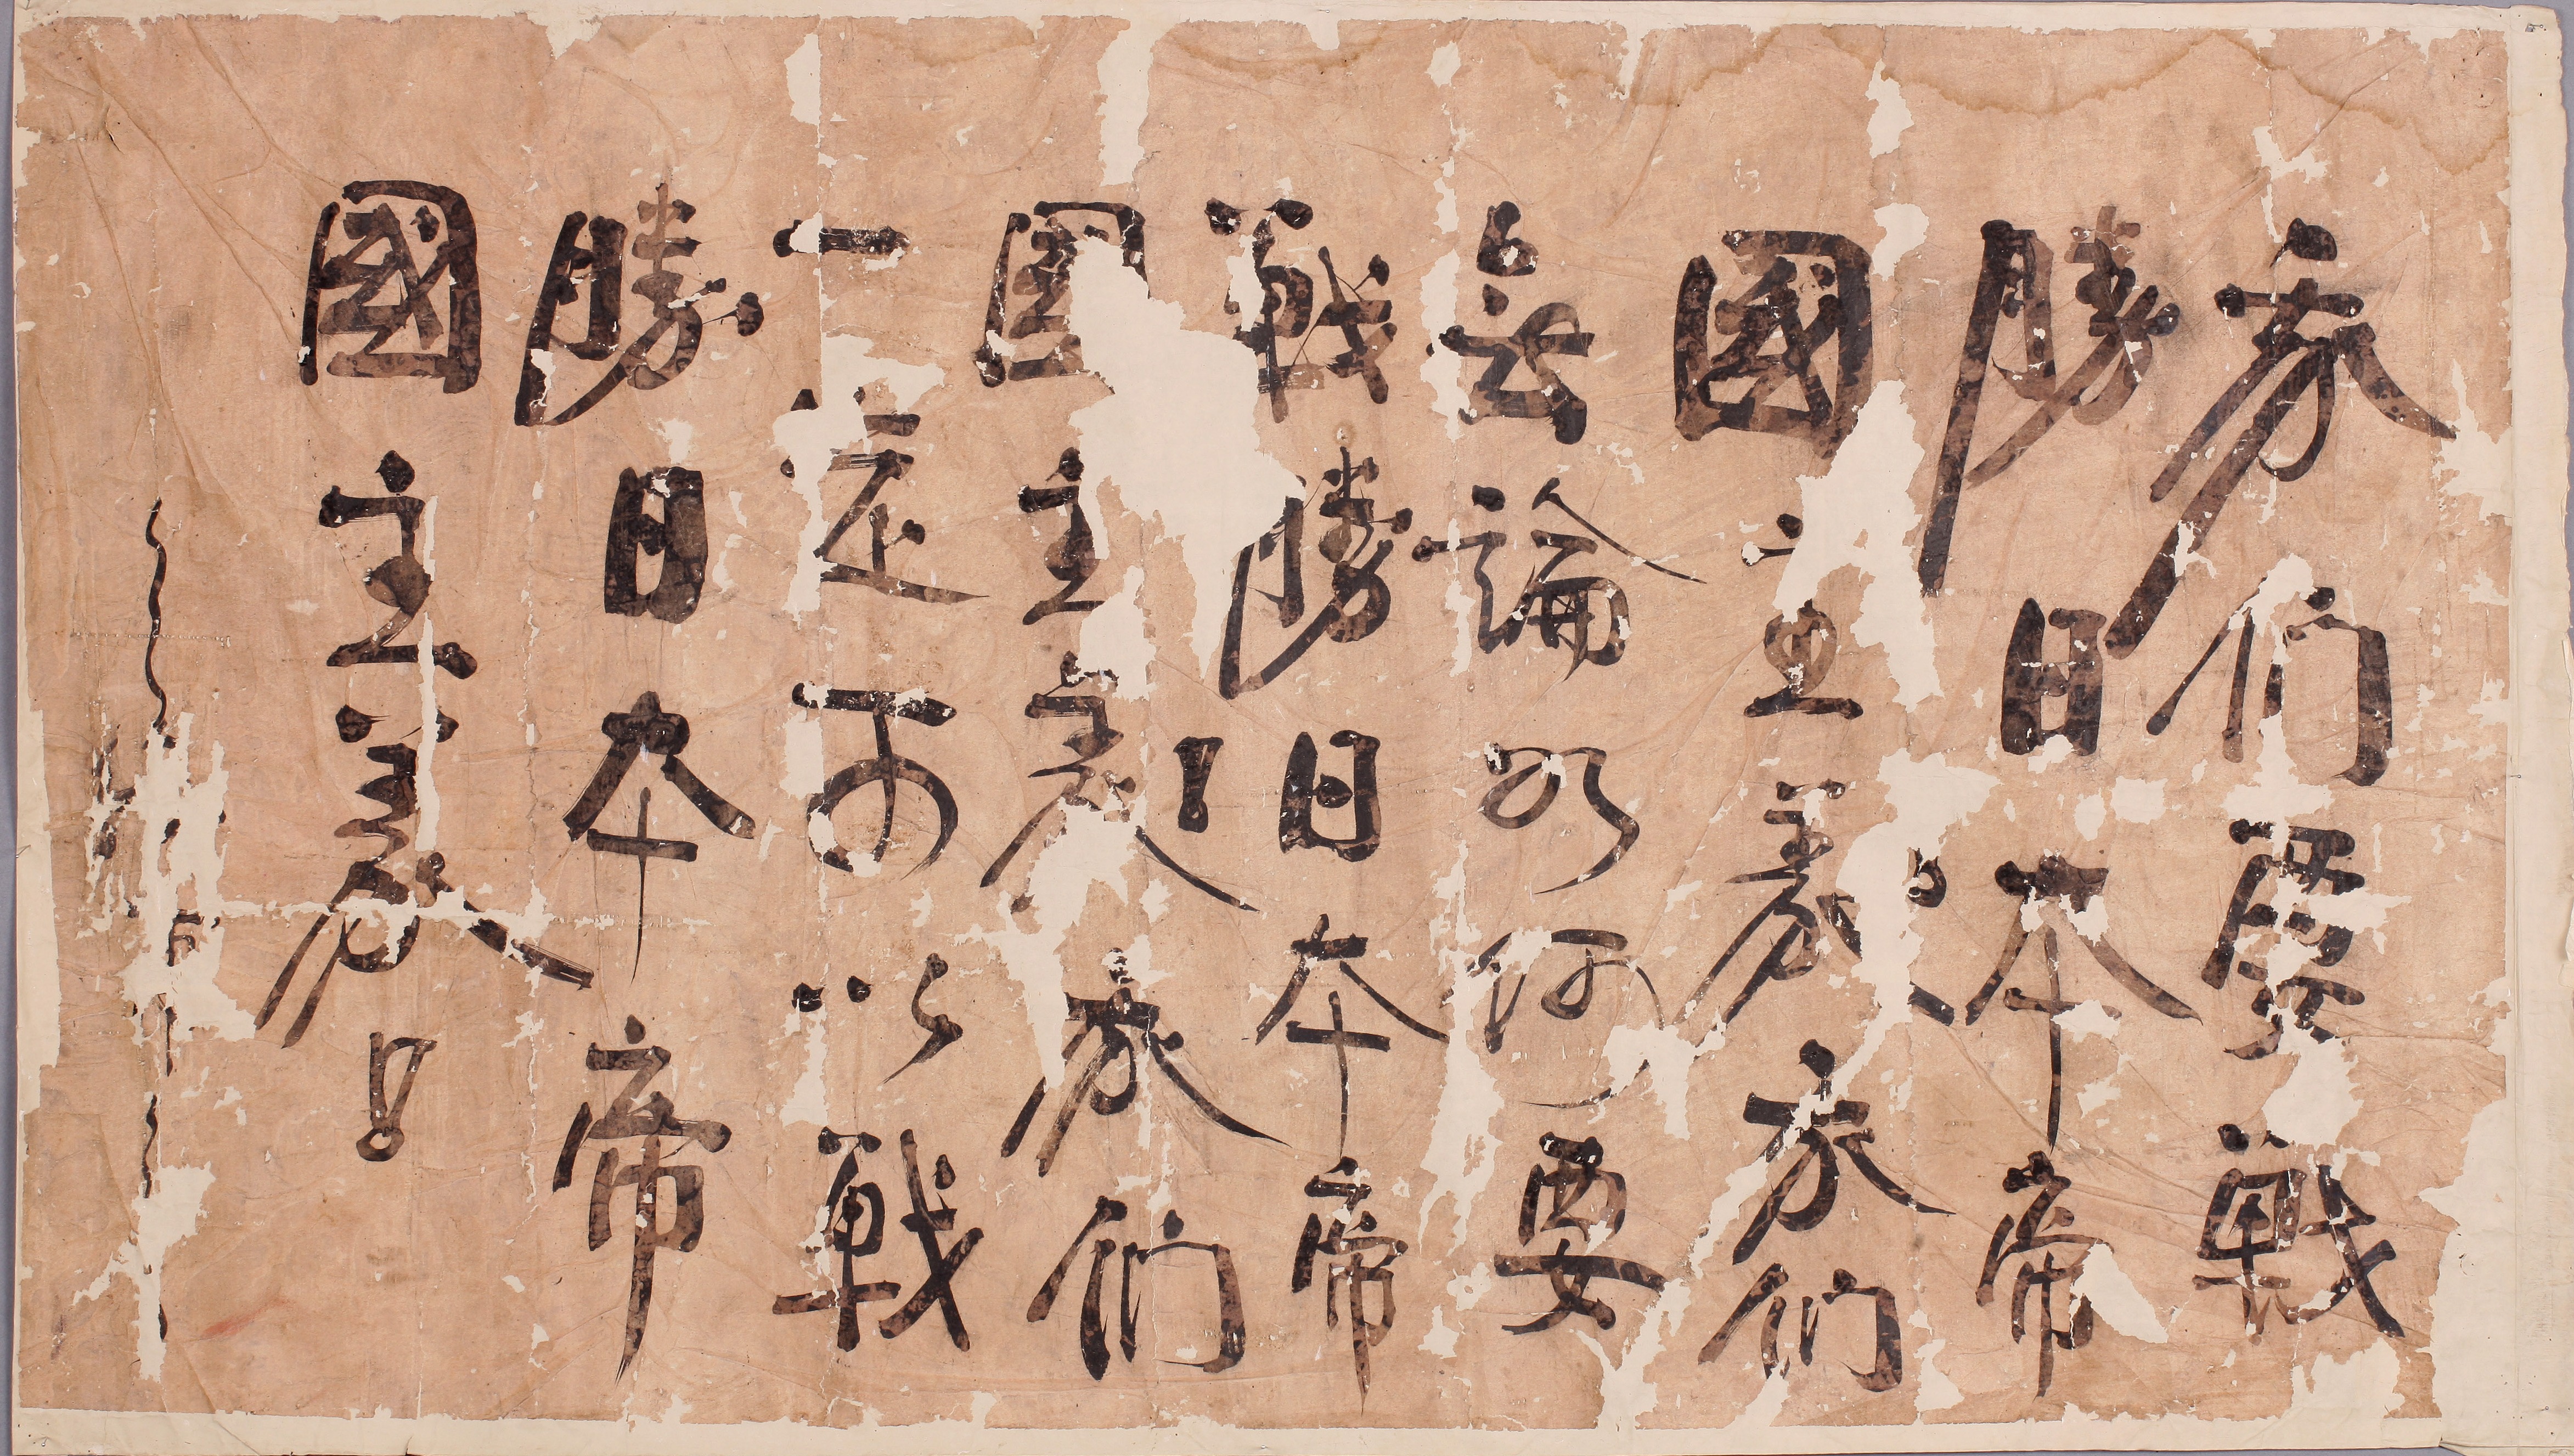 我们要戰
勝日本帝
國主義，我们
无論如何要
戰勝日本帝
國主義！我们
一定可以戰
勝日本帝
國主義！